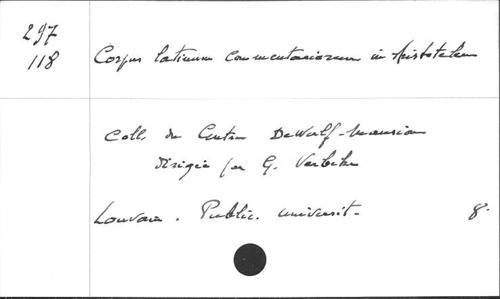 297
118
Corpus latinum commentariorum in Aristotelem
Coll. du Centre De Wulf-Mansion
dirigée par G. Verbeke
Louvain. Public. Universit. 8.